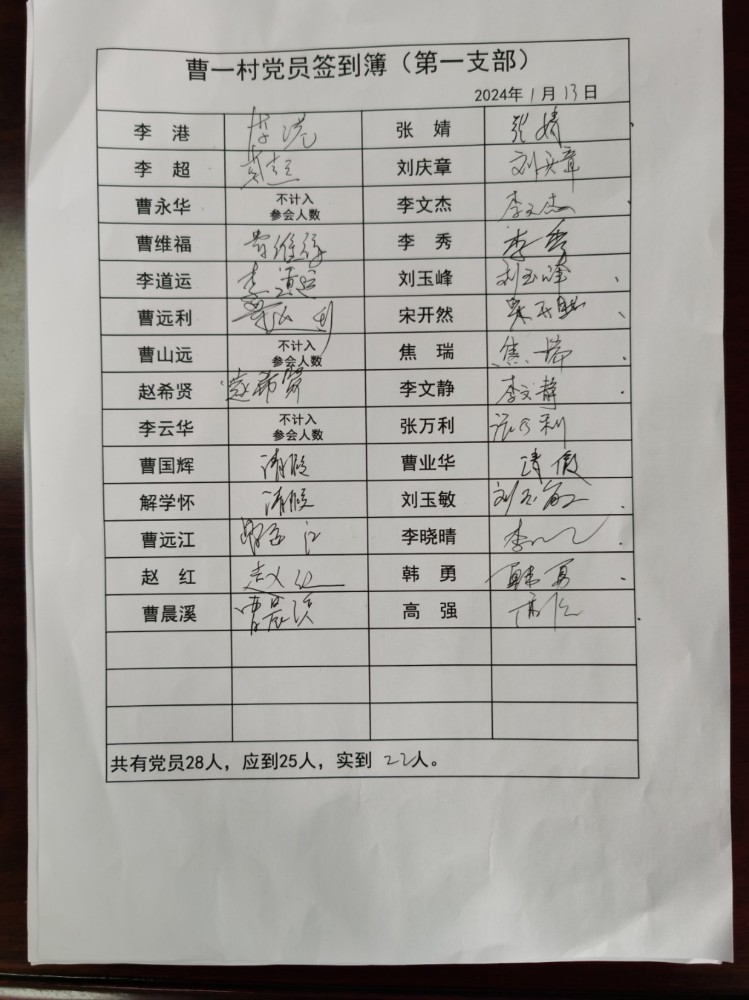 曹一村党员签到簿（第一支部）
2024年1月13日
李 港 李港 张 婧 张婧
李 超 李超 刘庆章 刘庆章
曹永华 不计入 参会人数 李文杰 李文杰
曹维福 曹维福 李 秀 李秀
李道运 李道运 刘玉峰 刘玉峰
曹远利 曹远利 宋开然 宋开然
曹山远 不计入 参会人数 焦 瑞 焦瑞
赵希贤 赵希贤 李文静 李文静
李云华 不计入 参会人数 张万利 张万利
曹国辉 请假 曹业华 请假
解学怀 请假 刘玉敏 刘玉敏
曹远江 李晓晴 李
赵 红 赵红 韩 勇 韩勇
曹晨溪 曹晨溪 高 强 高强
共有党员28人，应到25人，实到 22人。